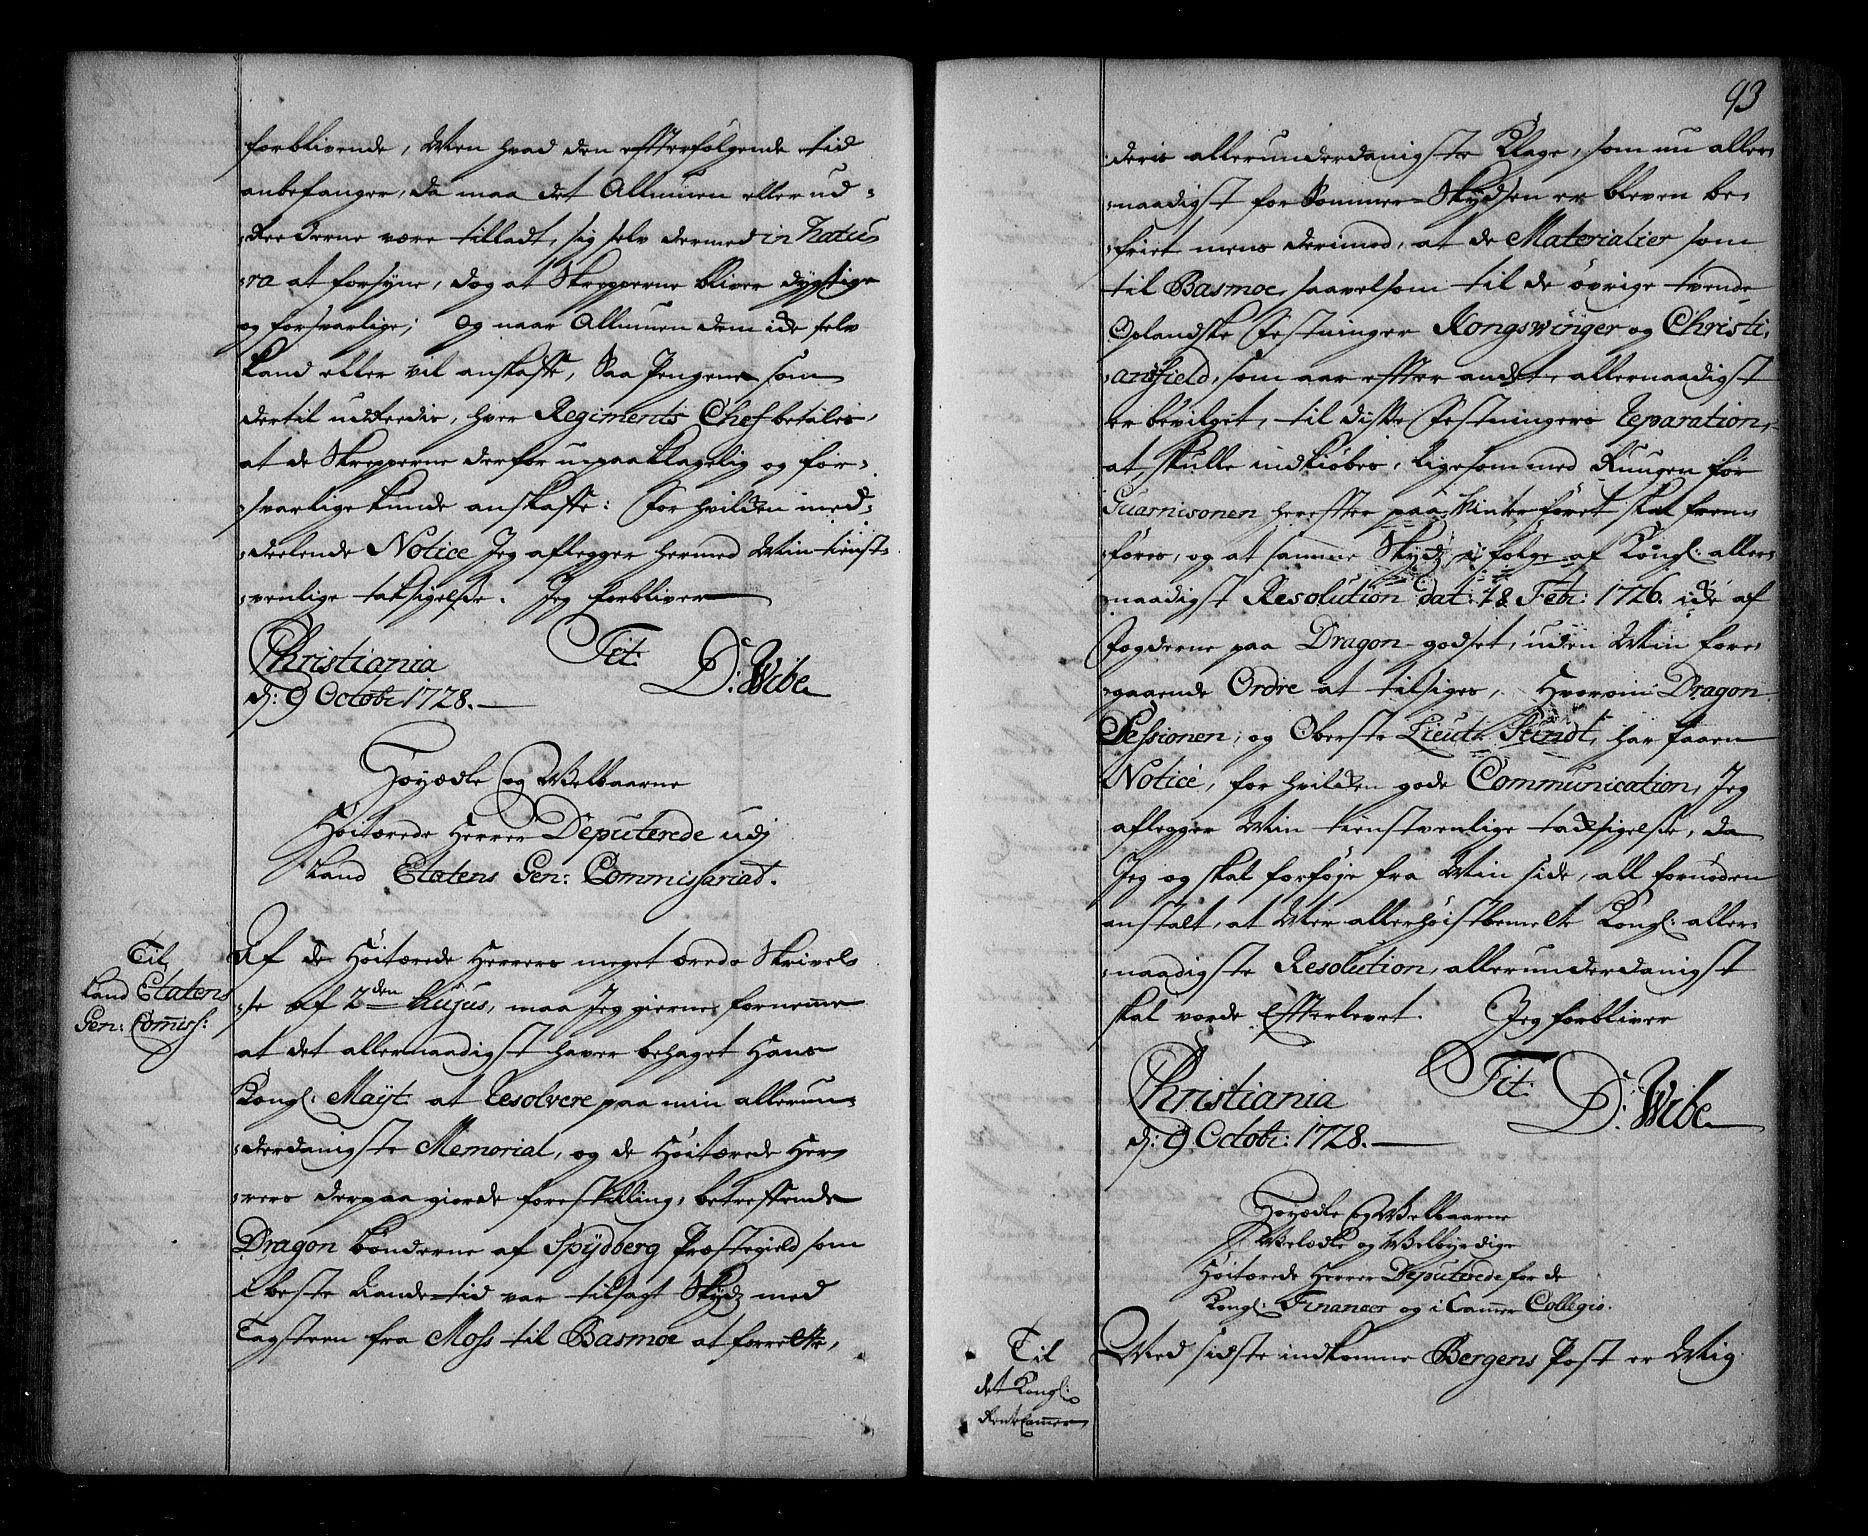 forblivende, Men hvad den efterfølgende tid
anbefanger, da maa det Allmuen eller ud-
-Reederne være tilladt, sig selv dermed in Natu-
-ra at forsyne, dog at Skrepperne bliver dygtige
og forsvarlige; Og naar Allmuen dem icke selv
kand eller vil anskaffe, Saa Pengene som
dertil udreedis, hver Regiments Chef betales,
at de Skrepperne derfor upaaklagelig og for-
-svarlige kunde anskaffe: For hvilcken med-
-deelende Notice Jeg aflegger hermed Min tienst-
-venlige taksigelse. Jeg forbliver
Christiania Tit: D: Wibe
d: 9 Octobr: 1728.
Høyædle og Velbaarne
Høitærede Herrer Deputerede udj
Land Etatens Gen: Commissariat.
Til
Land Etatens
Gen: Comiss:
Af de Høitærede Herrers meget ærede Skrivel-
-se af 2den hujus, maa Jeg gierne fornemme
at det allernaadigst haver behaget Hans
Kongl: Mayt: at Resolvere paa min allerun-
-derdanigste Memorial, og de Høitærede Her-
-rers derpaa giorde forestilling, betreffende
Dragon bønderne af Spydberg Præstegield som
i beste Aande-tid var tilsagt Skydz med
Tagsteen fra Moss til Basmoe at forrette,
93
deris allerunderdanigste Klage, som nu aller-
-naadigst for Sommer-Skydsen er bleven be-
-friet mens derimod, at de Materialier som
til Basmoe, saavelsom til de øvrige tvende
Oplandske Festninger Kongswinger og Christi-
-ansfield, som aar efter andet allernaadigst
er bevilget, til diste Festningers Reparation,
at skulle indkiøbes, ligesom med Ruugen for
Guarnisonen herefter paa Winterføret skal frem-
føres, og at samme Skydz i følge af Kongl: aller-
-naadigst Resolution dat: 18 Febr: 1726. icke af
Fogderne paa Dragon-godset, uden Min fore-
-gaaende Ordre at tilsiges, Hvorom Dragon
Sessionen, og Oberste Lieut: Stindt, har faaen
Notice, for hvilcken gode Communication, Jeg
aflegger Min tienstvenlige tacksigelse, da
Jeg og skal forføje fra Min side, all fornøden
anstalt, at Meer allerhøistbemelte Kongl: aller-
-naadigste Resolution, allerunderdanigst
skal vorde Efterlevet. Jeg forbliver
Christiania Tit: D: Wibe
d: 9 Octobr: 1728.
Høyædle og Velbaarne
Velædle og Velbyrdige
Høitærede Herrer Deputerede for de
Kongl: Financer og i Cammer Collegio.
Til
det Kongl:
Rente Cammer
Med sidste indkomne Bergens Post er Mig